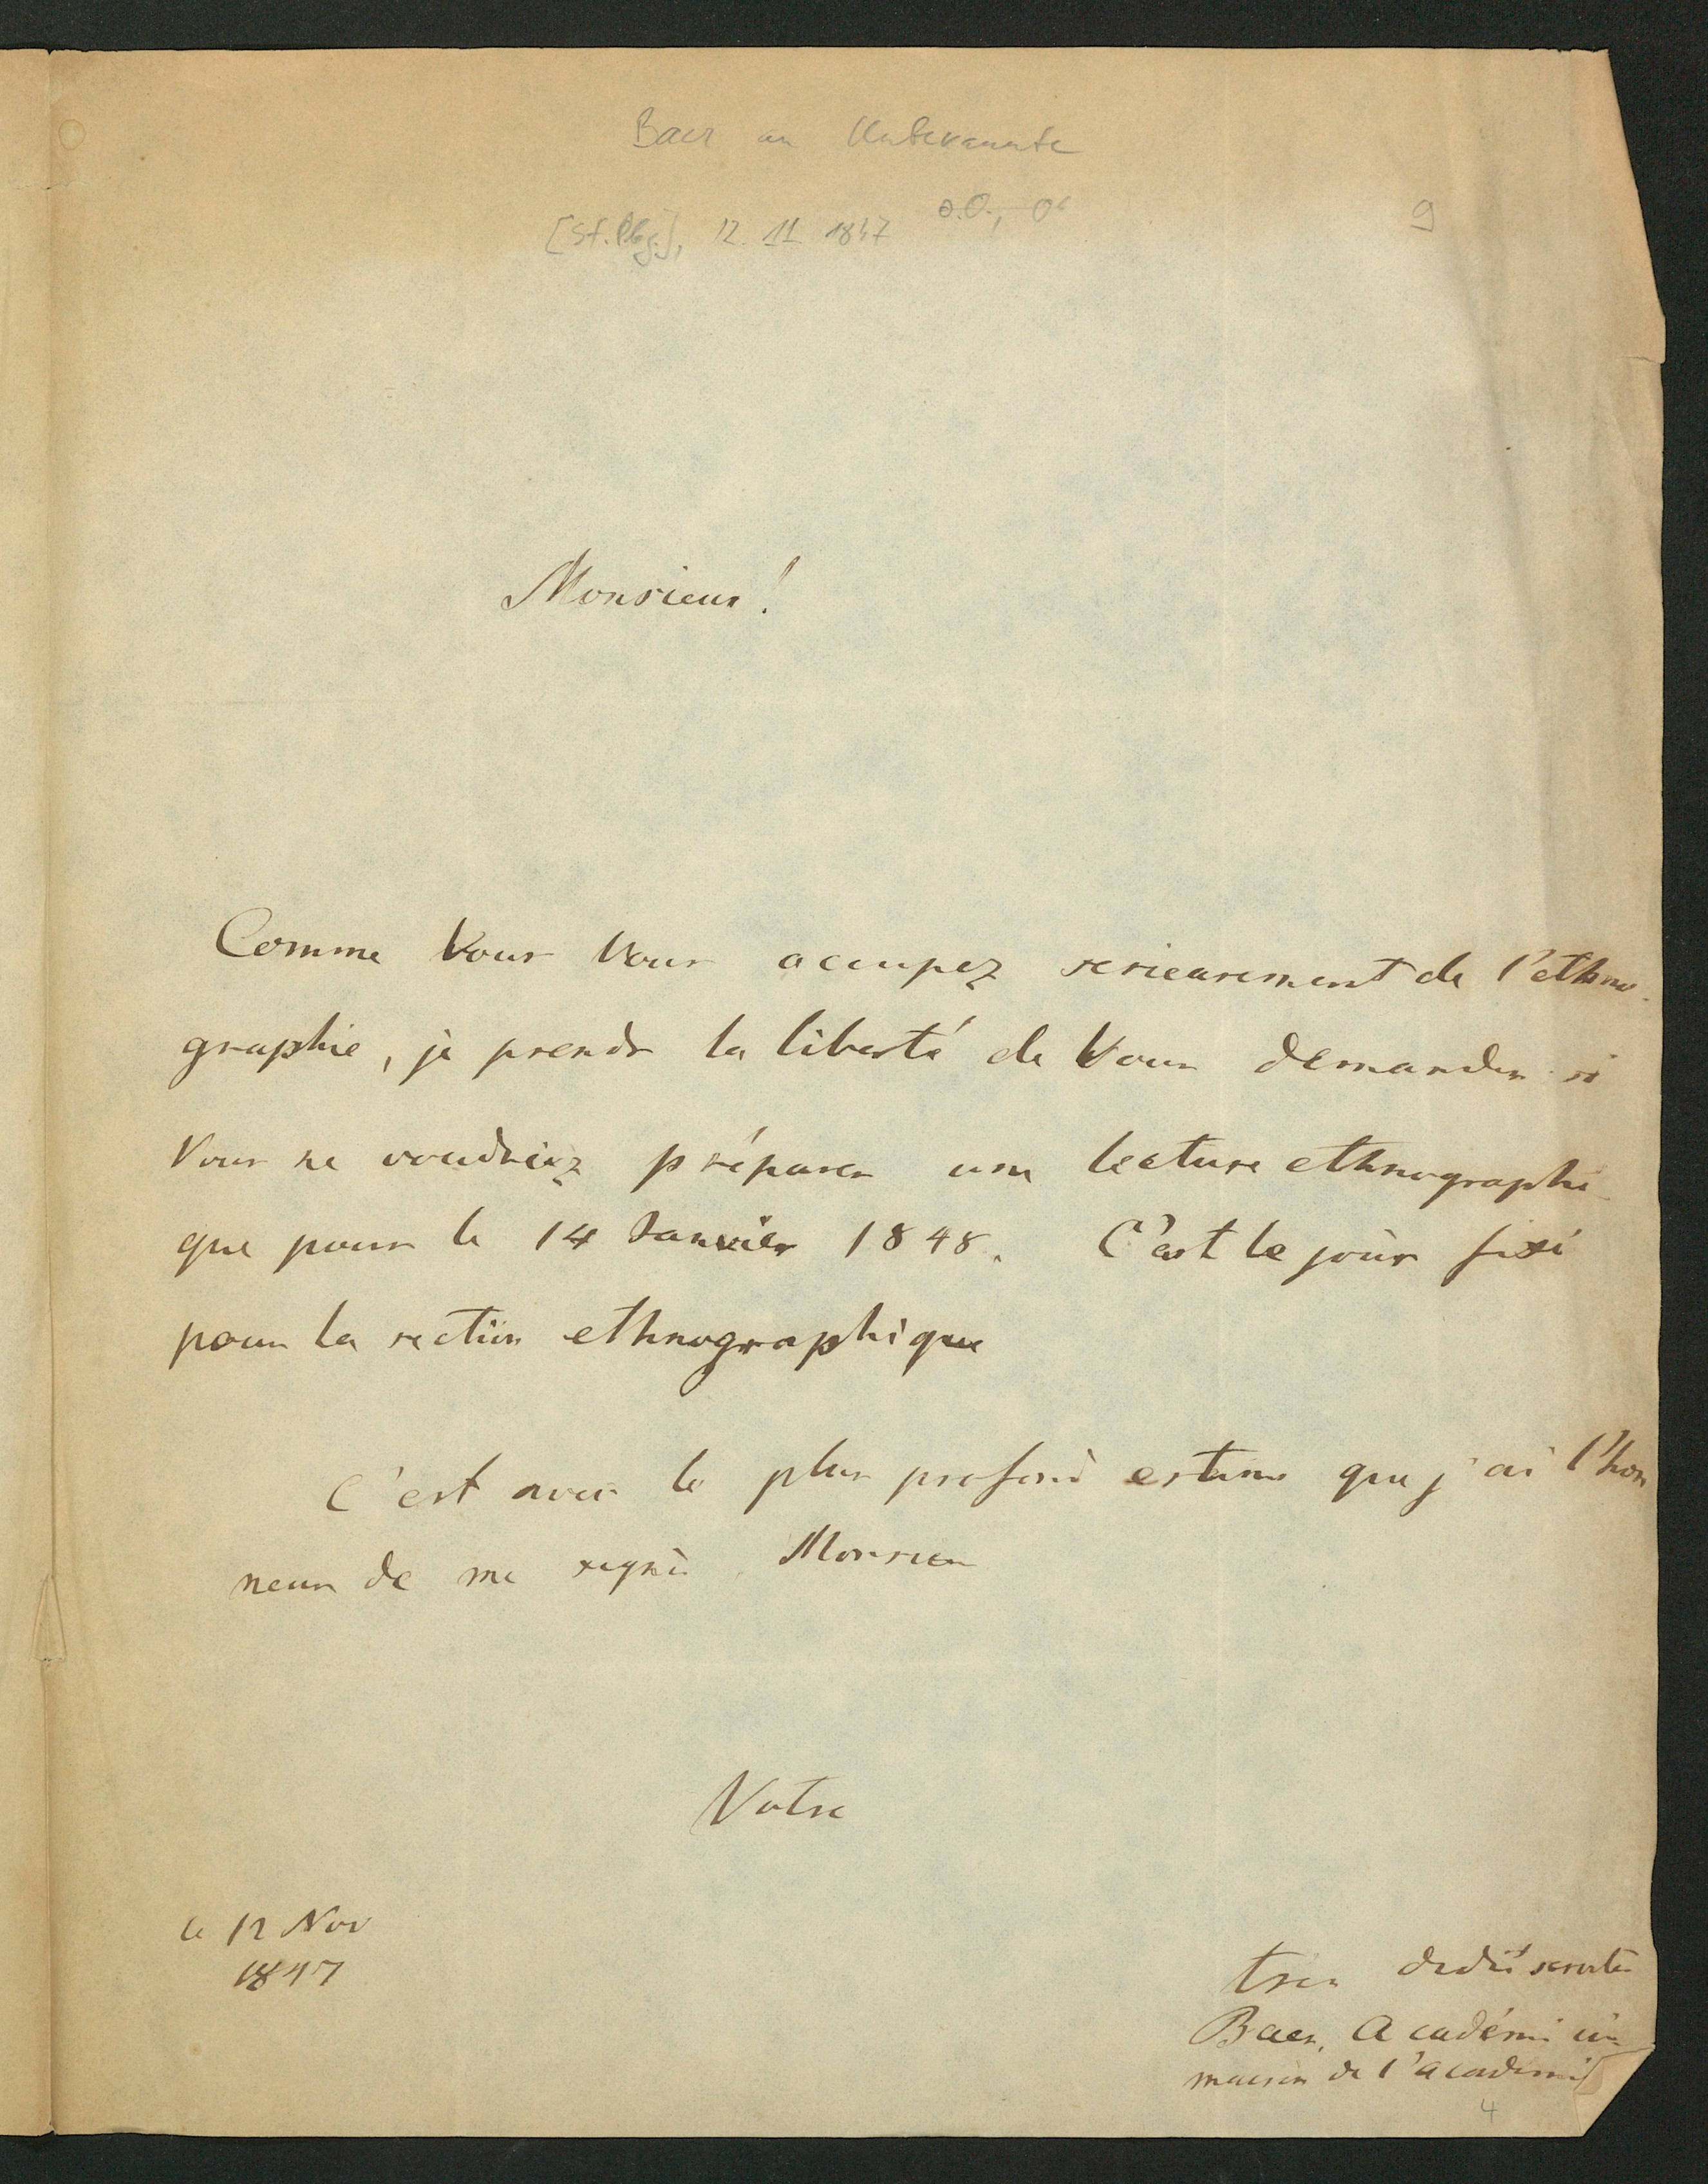 Baer an Unbekannte
o.O.,
[St. Pbg.], 12. 11 1847
9
Monsieur!
Comme Vous Vous occupez serieusement de l'ethno-
graphie, je prends la liberté de Vous demander si
Vous ne voudriez préparer une lecture ethnographi-
que pour le 14 Janvier 1848. C'est le jour fixé
pour la section ethnographique
C'est avec le plus profond estime que j'ai l'hon
neur de me signer Monsieur
Votre
le 12 Nov
1847
tres dedié
Baer, Académicien
maison de l'académie
4